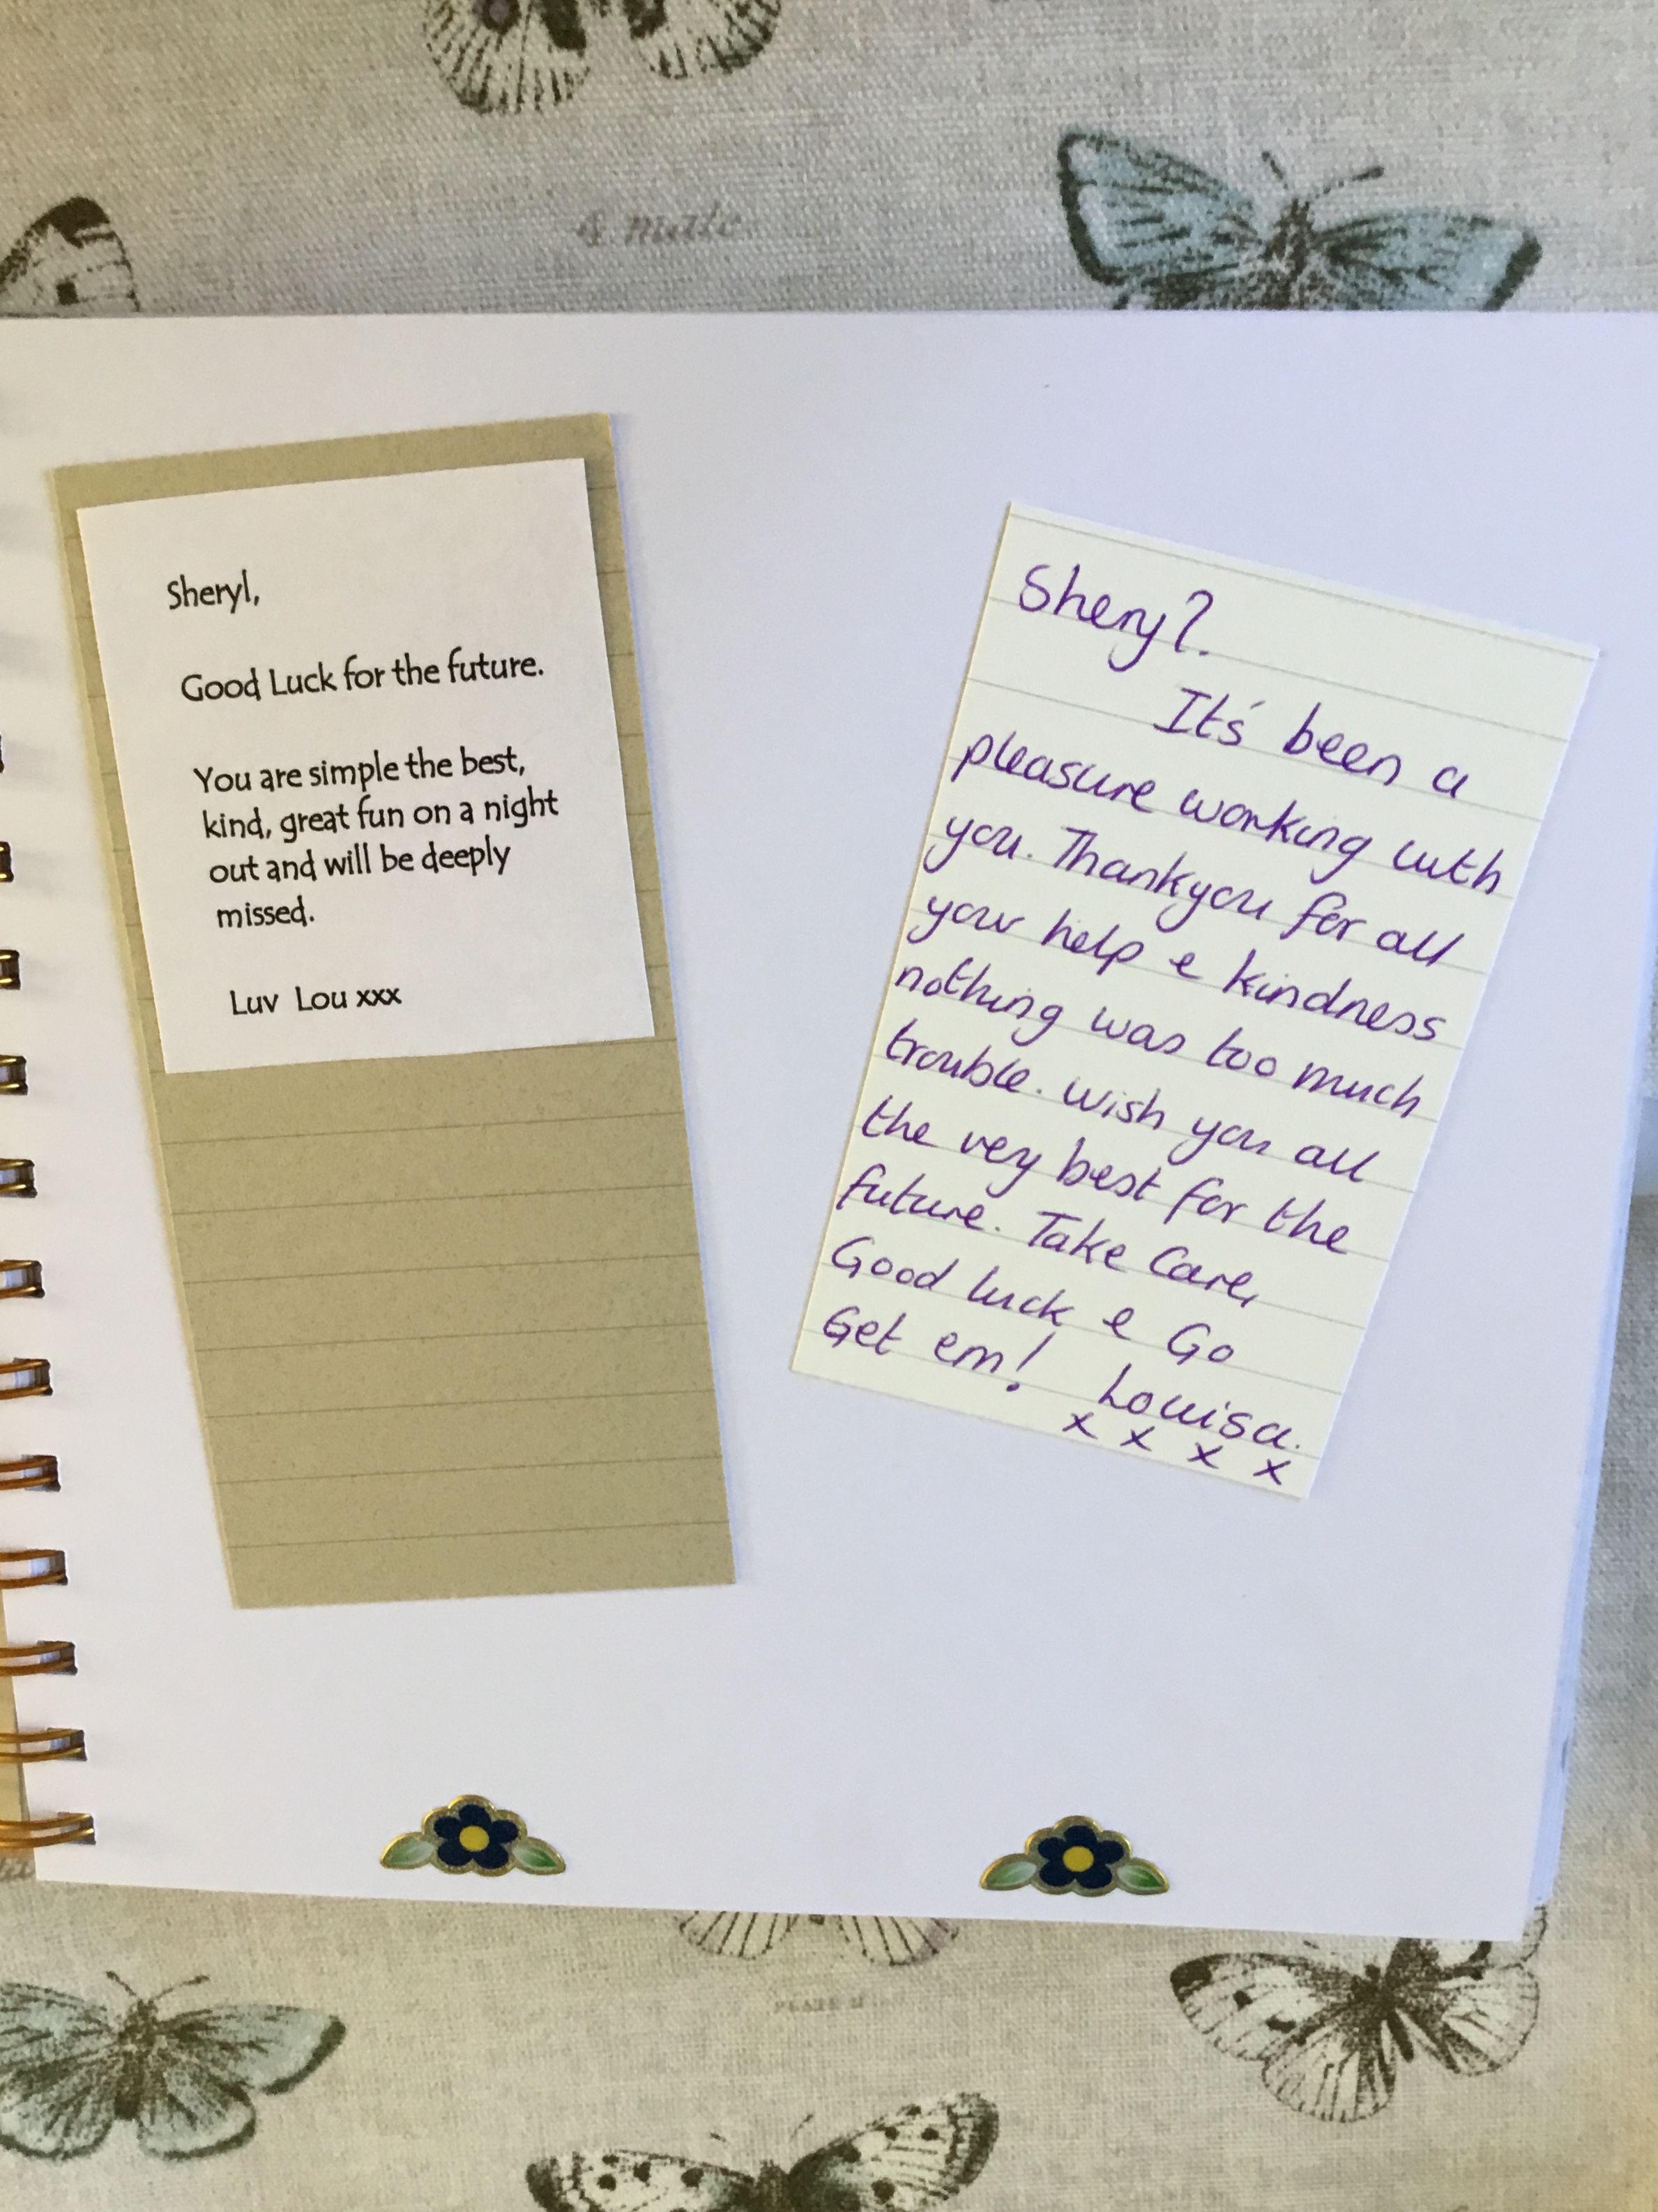 4. male
Sheryl,
Good Luck for the future.
You are simple the best,
kind, great fun on a night
out and will be deeply
missed.
Luv Lou xxx
Sheryl.
It's been a
pleasure working with
you. Thankyou for all
your help & kindness
nothing was too much
trouble. Wish you all
the very best for the
future. Take Care,
Good luck & Go
Get em!
Louisa.
x x x x
PLATE II